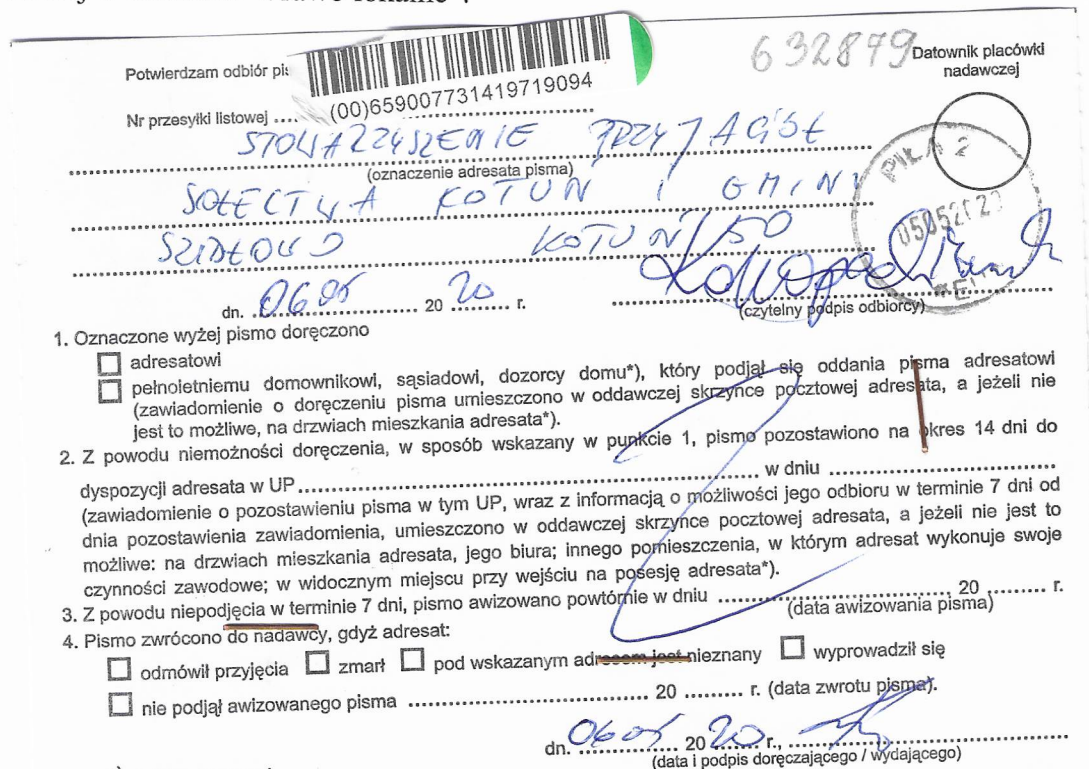 632879
Datownik placówki
nadawczej
Potwierdzam odbiór
(00)659007731419719094
Nr przesyłki listowej
STOWARZYSZENIE PRZYJACIÓŁ
(oznaczenie adresata pisma)
SOŁECTWA KOTUŃ I GMINY
SZYDŁOWO KOTUŃ 50
PIŁA 2
dn. 06 05 20 20 r.
(czytelny podpis odbiorcy)
1. Oznaczone wyżej pismo doręczono
adresatowi
pełnoletniemu domownikowi, sąsiadowi, dozorcy domu*), który podjął się oddania pisma adresatowi
(zawiadomienie o doręczeniu pisma umieszczono w oddawczej skrzynce pocztowej adresata, a jeżeli nie
jest to możliwe, na drzwiach mieszkania adresata*).
2. Z powodu niemożności doręczenia, w sposób wskazany w punkcie 1, pismo pozostawiono na okres 14 dni do
dyspozycji adresata w UP w dniu
(zawiadomienie o pozostawieniu pisma w tym UP, wraz z informacją o możliwości jego odbioru w terminie 7 dni od
dnia pozostawienia zawiadomienia, umieszczono w oddawczej skrzynce pocztowej adresata, a jeżeli nie jest to
możliwe: na drzwiach mieszkania adresata, jego biura; innego pomieszczenia, w którym adresat wykonuje swoje
czynności zawodowe; w widocznym miejscu przy wejściu na posesję adresata*).
3. Z powodu niepodjęcia w terminie 7 dni, pismo awizowano powtórnie w dniu 20 r.
(data awizowania pisma)
4. Pismo zwrócono do nadawcy, gdyż adresat:
odmówił przyjęcia zmarł pod wskazanym adresem jest nieznany wyprowadził się
nie podjął awizowanego pisma 20 r. (data zwrotu pisma).
dn. 06 05 20 20 r.,
(data i podpis doręczającego / wydającego)